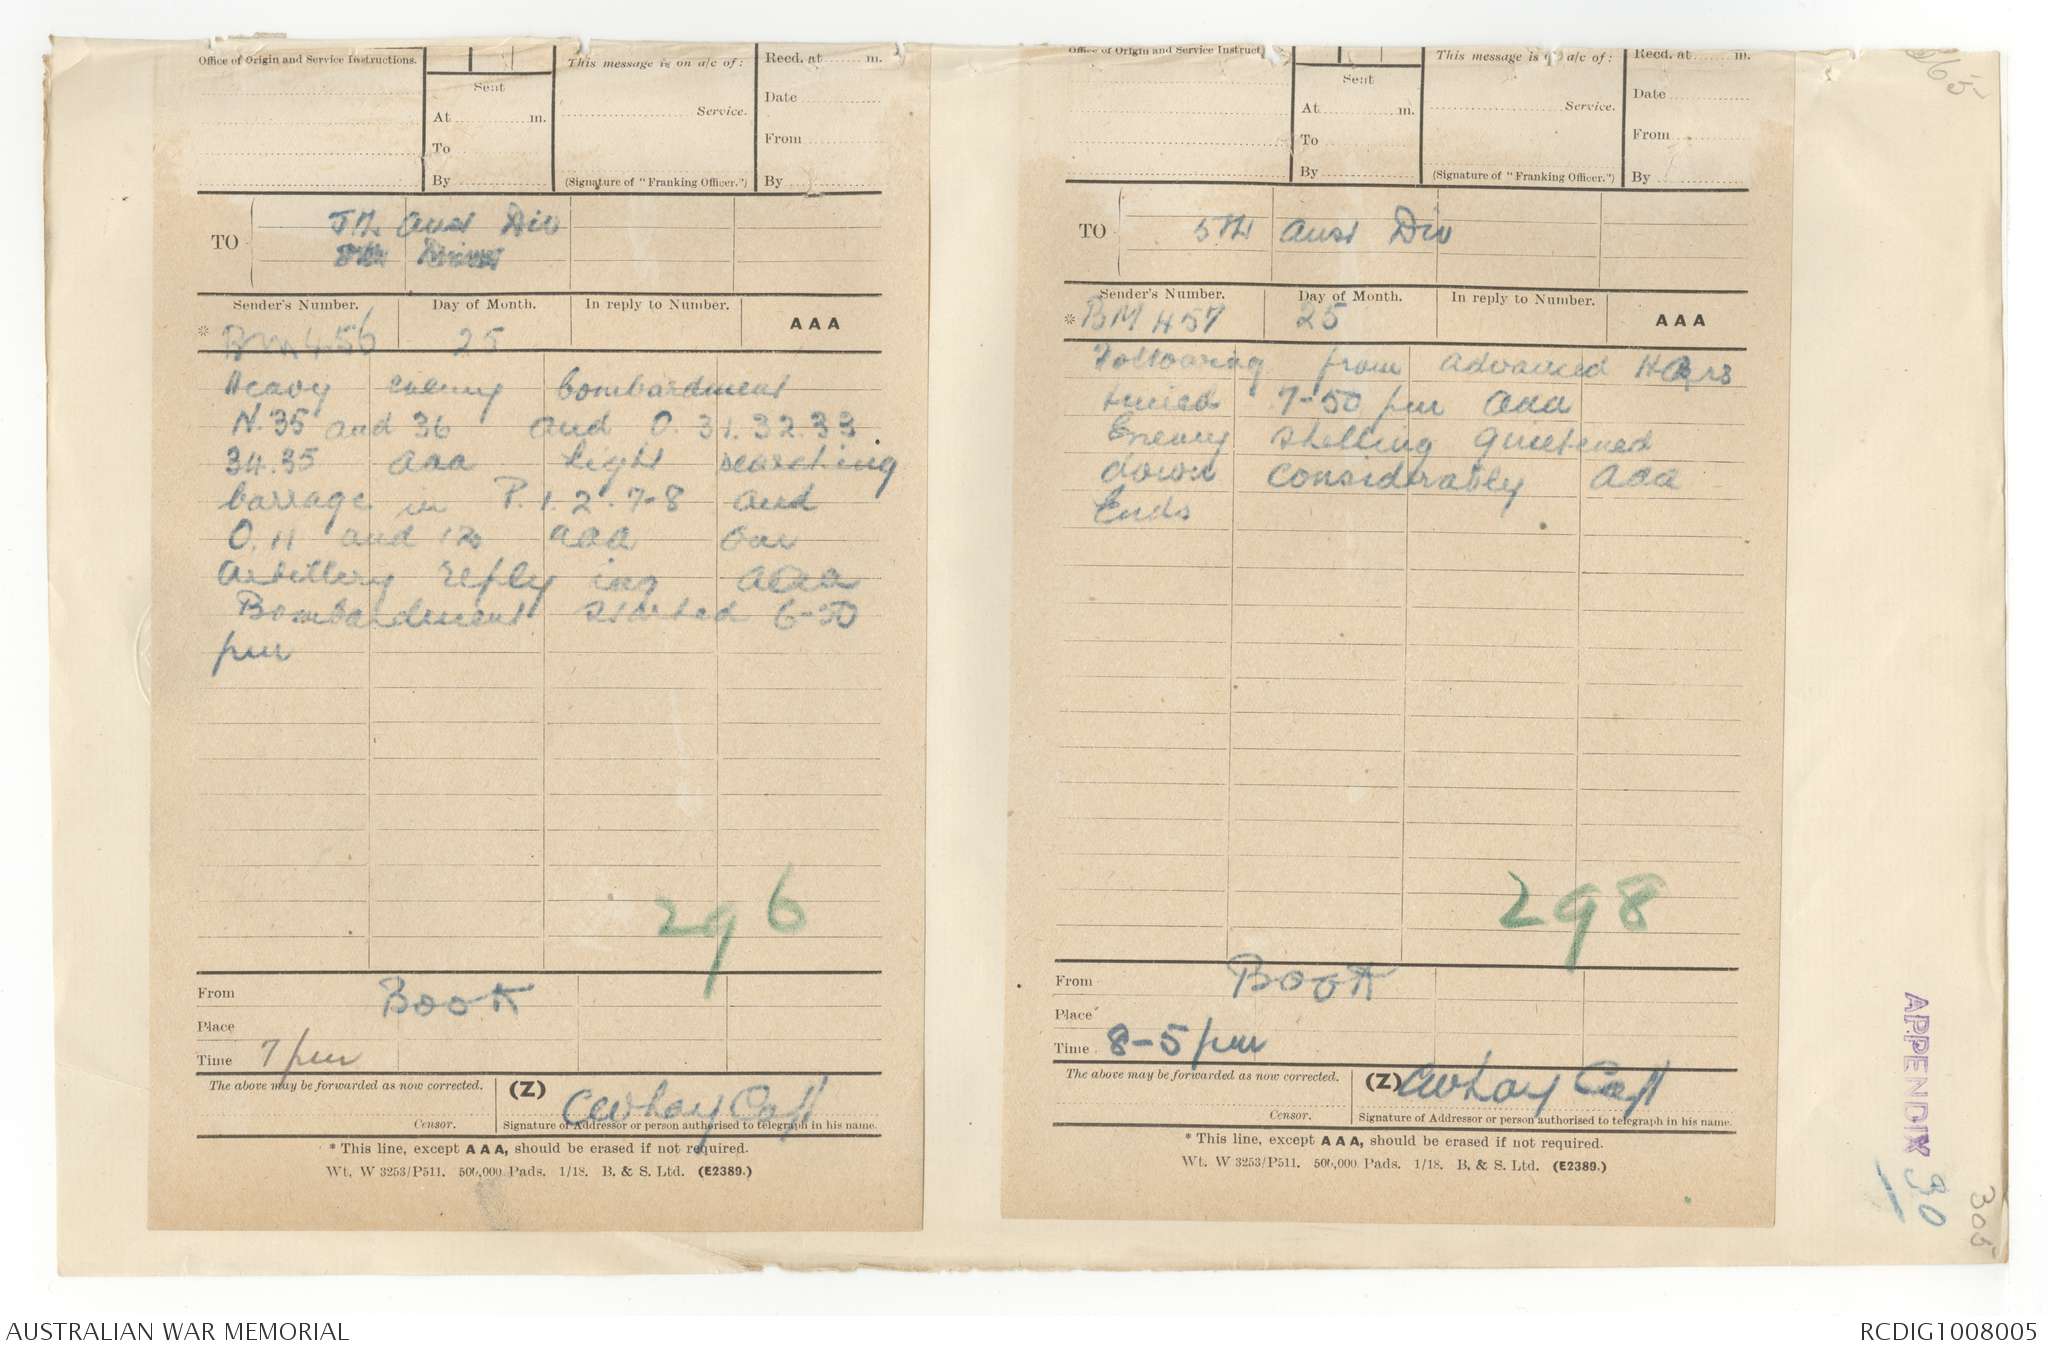 Office of Origin and Service Instructions.
Sent
At ........ m.
To
By
This message is on a/c of:
Service.
(Signature of "Franking Officer.")
Recd. at ........ m.
Date
From
By
TO
5th Aust Div
Sender's Number.
Day of Month.
In reply to Number.
AAA
* BM 456
25
Heavy enemy bombardment
N.35 and 36 and O. 31.32.33.
34.35 aaa light searching
barrage in P. 1. 2. 7-8 and
O. 11 and 12 aaa Our
Artillery reply ing aaa
Bombardment started 6-50
pm
296
From
Book
Place
Time 7 pm
The above may be forwarded as now corrected.
(Z)
Capt
Censor.
Signature of Addressor or person authorised to telegraph in his name.
* This line, except AAA, should be erased if not required.
Wt. W 3253/P511. 500,000 Pads. 1/18. B. & S. Ltd. (E2389.)
Office of Origin and Service Instruct
Sent
At ........ m.
To
By
This message is on a/c of:
Service.
(Signature of "Franking Officer.")
Recd. at ........ m.
Date
From
By
TO
5th Aust Div
Sender's Number.
Day of Month.
In reply to Number.
AAA
* BM 457
25
Following from advanced HQrs
timed 7-50 pm aaa
Enemy shelling quietened
down considerably aaa
Ends
298
From
Book
Place
Time 8-5 pm
The above may be forwarded as now corrected.
(Z)
Capt
Censor.
Signature of Addressor or person authorised to telegraph in his name.
* This line, except AAA, should be erased if not required.
Wt. W 3253/P511. 500,000 Pads. 1/18. B. & S. Ltd. (E2389.)
APPENDIX 30
305
AUSTRALIAN WAR MEMORIAL
RCDIG1008005